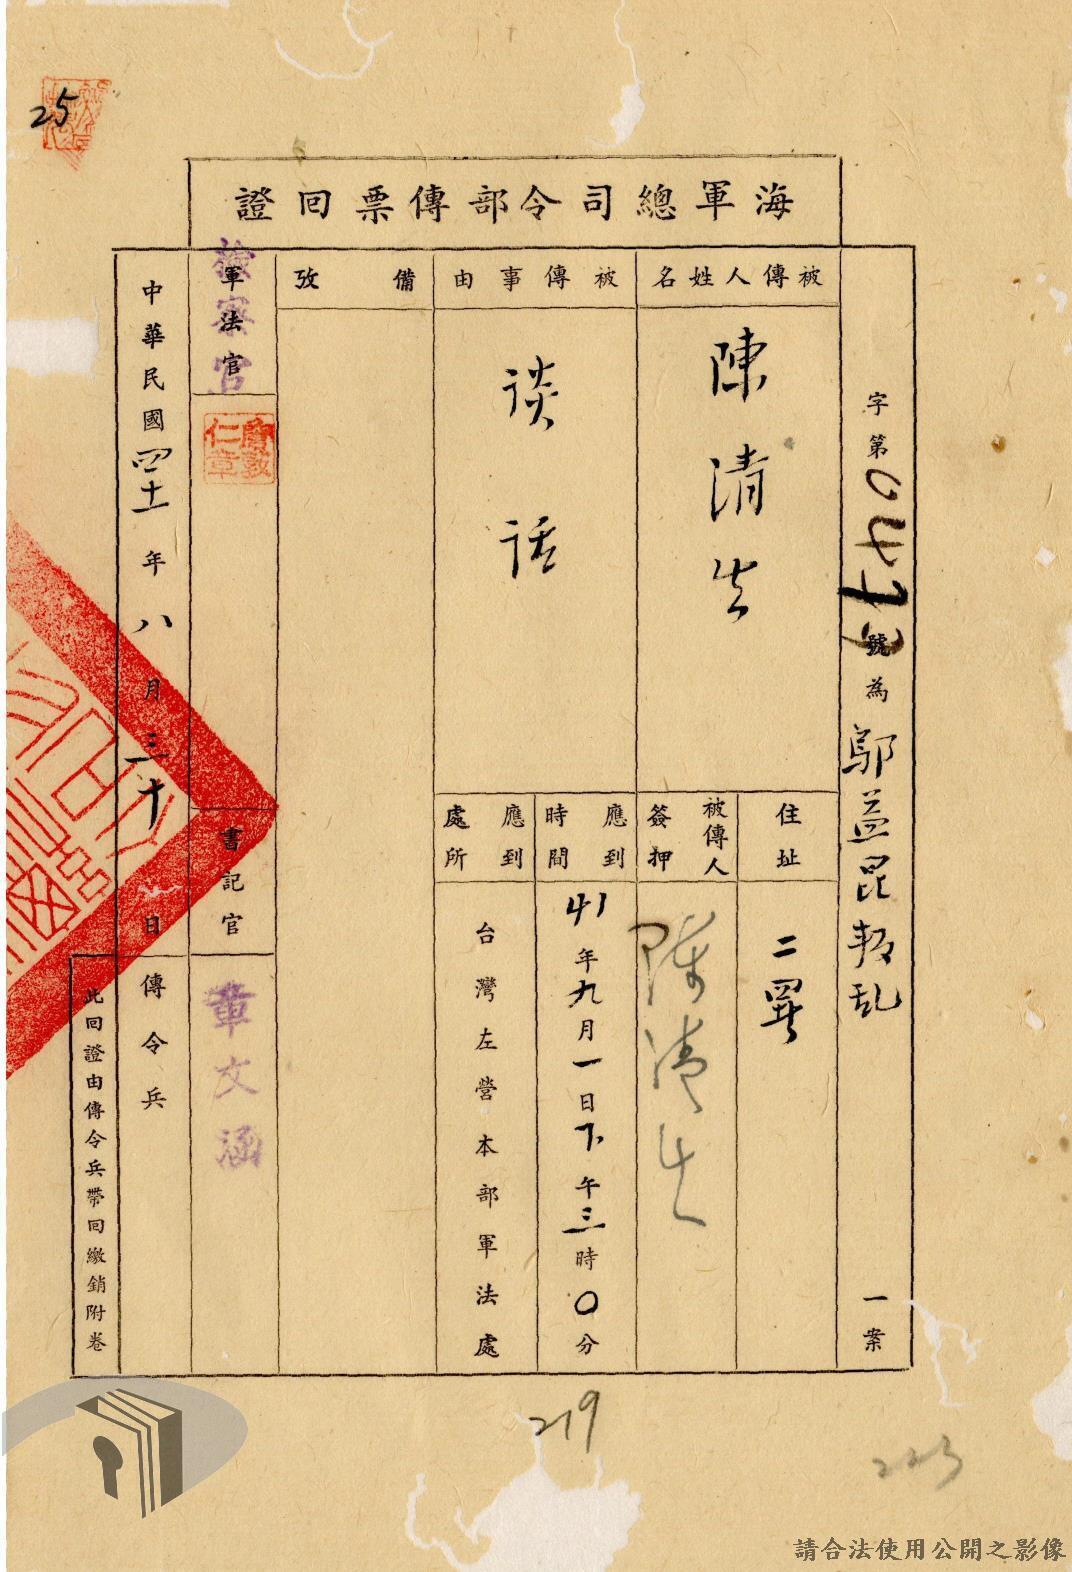 25
海軍總司令部傳票回證
字第 號為鄔益昆叛乱 一案
被傳人姓名
陳清生
住址
二署
被傳人簽押
陳清生
被傳事由
谈话
應到時間
41年九月一日下午三時0分
應到處所
台灣左營本部軍法處
備攷
軍法官
檢察官
書記官
章文涵
中華民國四十一年八月三十日
傳令兵
此回證由傳令兵帶回繳銷附卷
219
223
請合法使用公開之影像